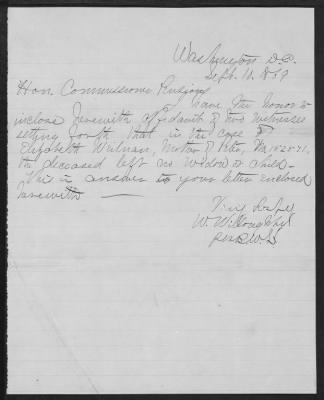 Washington D.C.
Sept. 11.
Hon. Commissioner Pensions
I have the honor to
inclose herewith affidavit of two witnesses
setting forth that in the case of
Elizabeth Mother of Peter, No
the deceased left no Widow or child—
This in answer to your letter enclosed
herewith —
Very Respt
W. Willoughby